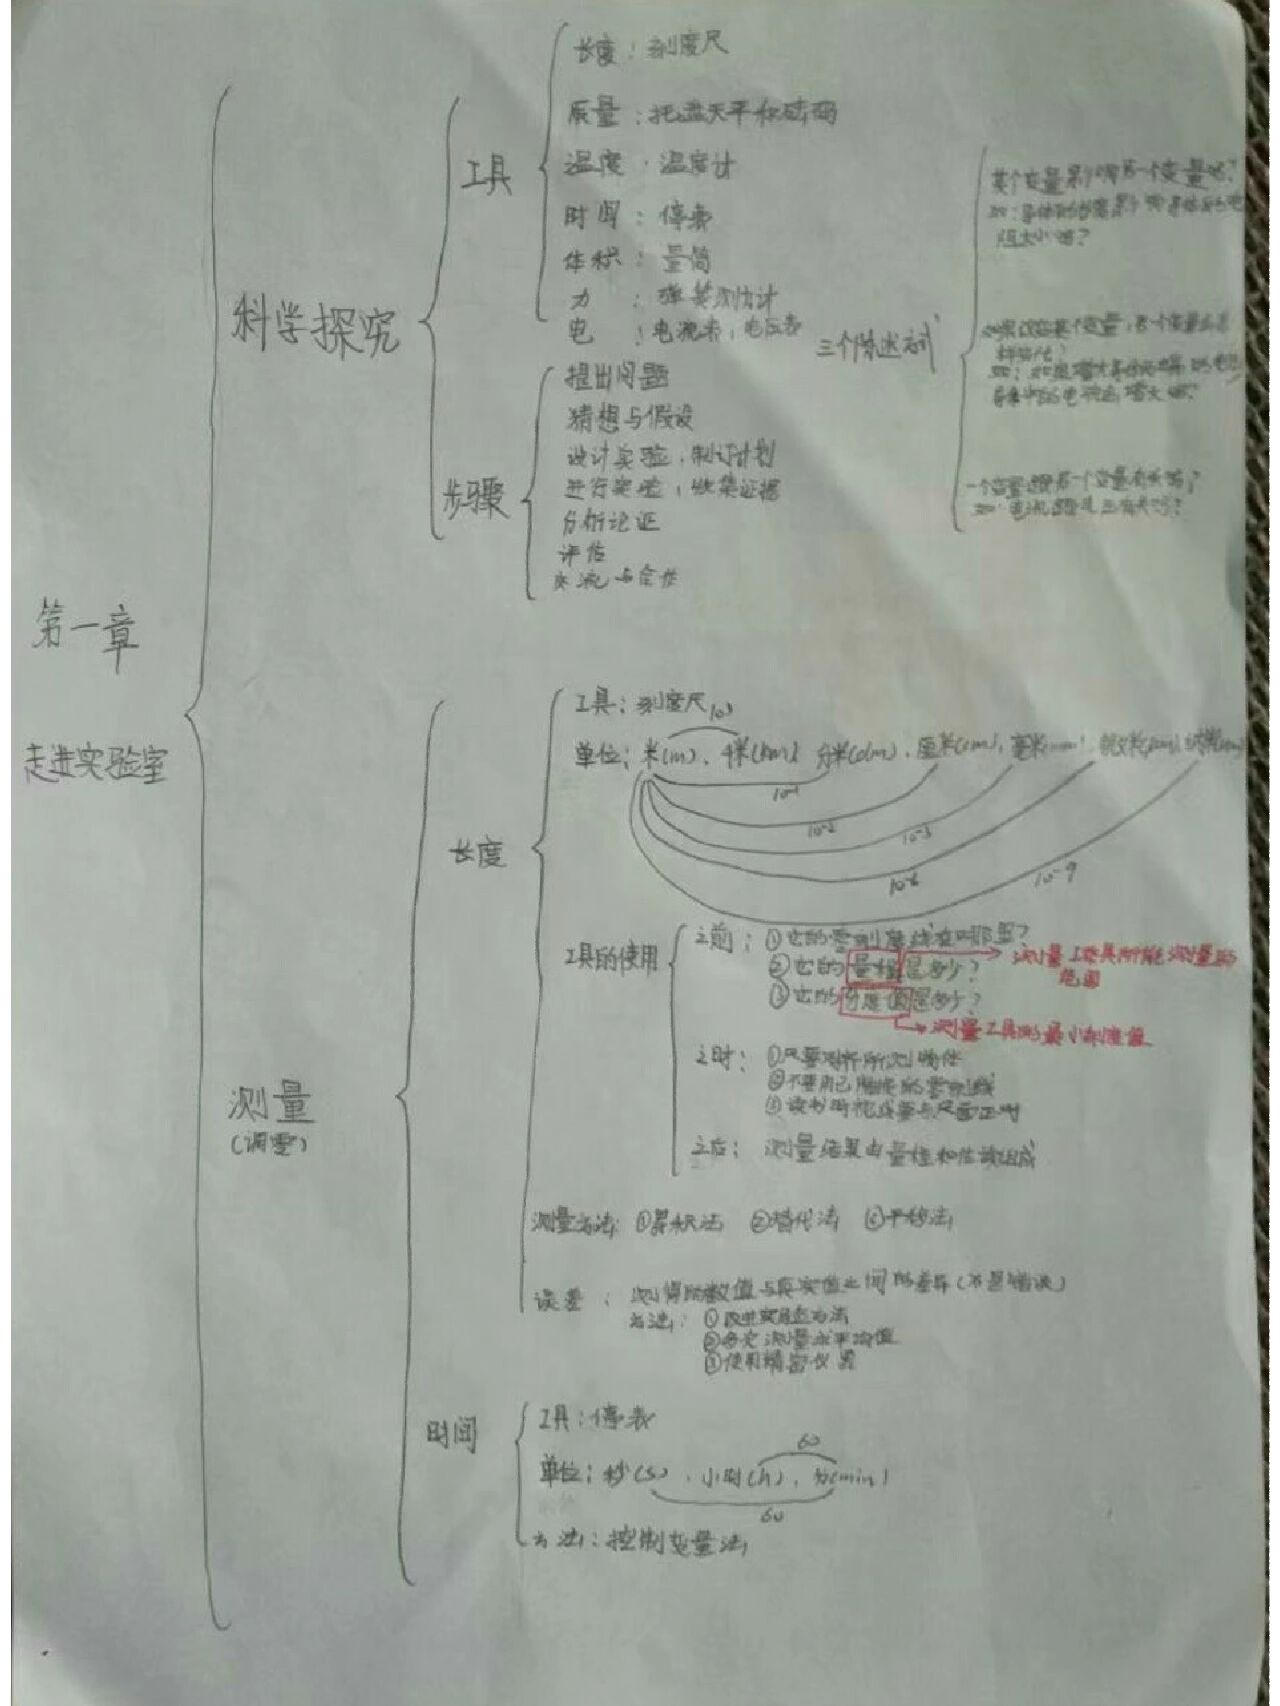 第一章
走进实验室
科学探究
工具
长度：刻度尺
质量：托盘天平和砝码
温度：温度计
时间：停表
体积：量筒
力：弹簧测力计
电：电流表，电压表
步骤
提出问题
猜想与假设
设计实验，制订计划
进行实验，收集证据
分析论证
评估
交流与合作
三个陈述方式
某个变量影响另一个变量吗？
如：导体的长度影响导体的电
阻大小吗？
如果改变某个变量，另一个变量会怎
样变化？
一个变量跟另一个变量有关吗？
测量
(调零)
长度
工具：刻度尺
10³
单位：米(m)、千米(km)、分米(dm)、厘米(cm)、毫米(mm)、微米(μm)、纳米(nm)
10-1
10-2
10-3
10-6
10-9
工具的使用
之前：①它的零刻度线在哪里？
②它的量程是多少？
测量工具所能测量的
范围
③它的分度值是多少？
测量工具的最小刻度值
之时：①尺要对齐所测物体
③读书时视线要与尺面正对
之后：测量结果由量程和估读组成
测量方法：①累积法 ②替代法 ③平移法
误差：测得的数值与真实值之间的差异(不是错误)
方法：①改进实验方法
②多次测量求平均值
③使用精密仪器
时间
工具：停表
60
单位：秒(s)、小时(h)、分(min)
60
方法：控制变量法